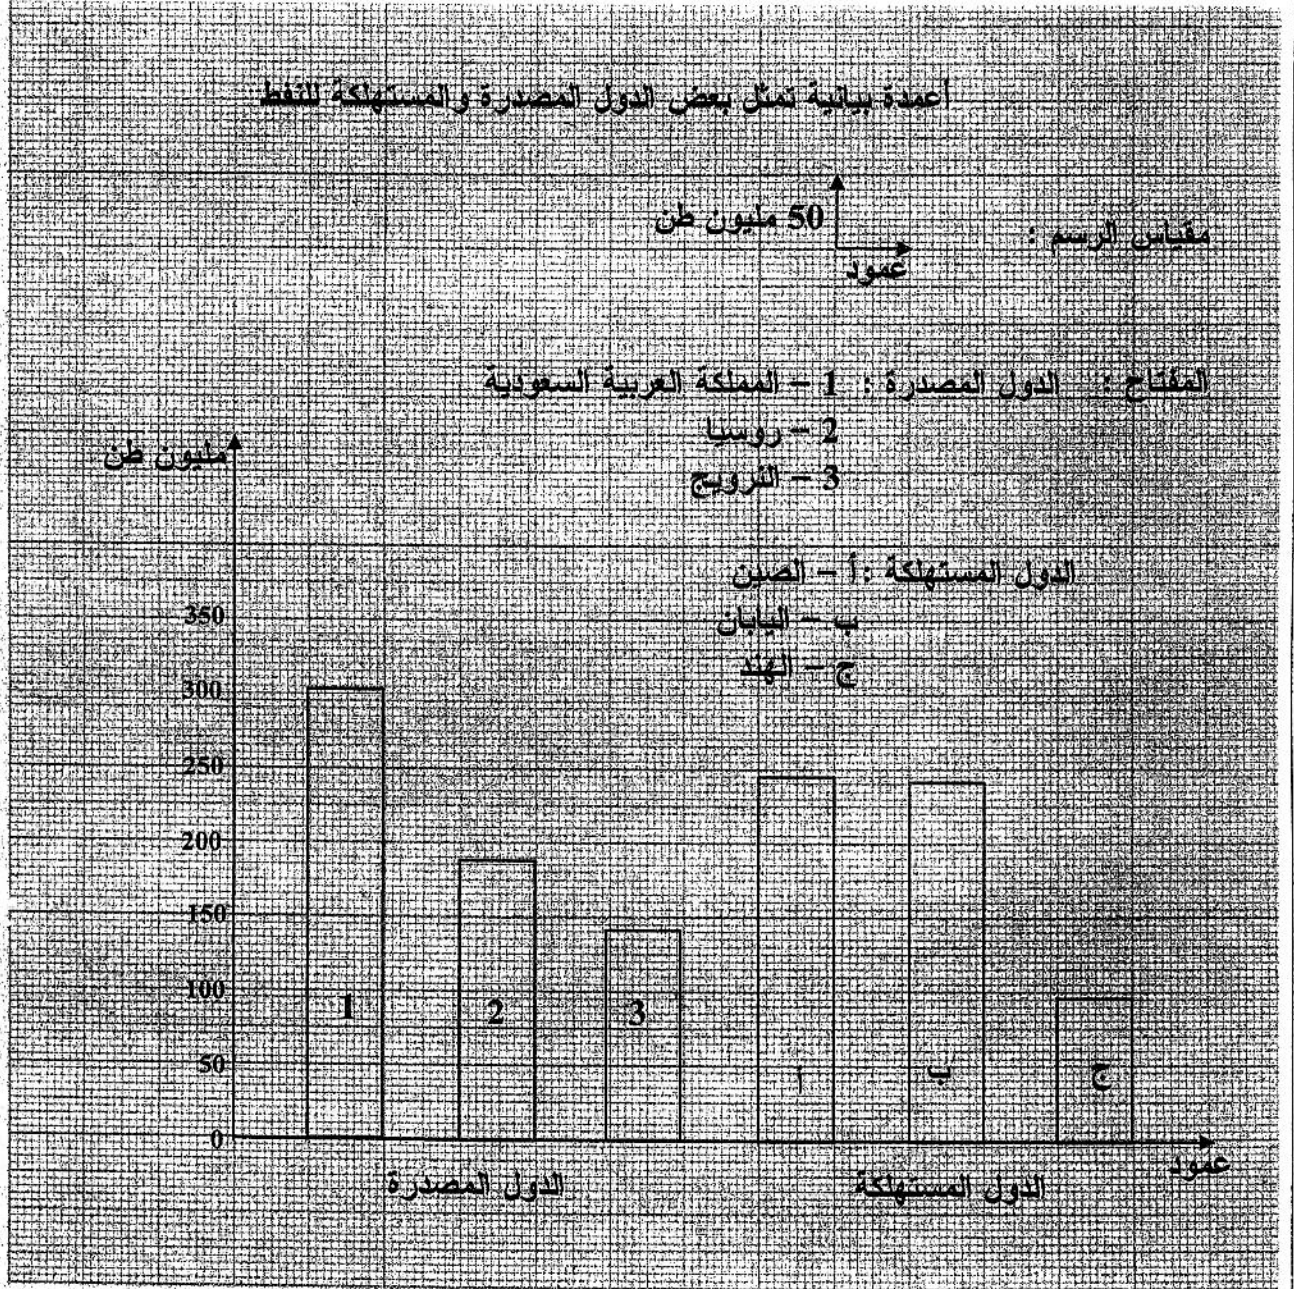 أعمدة بيانية تمثل بعض الدول المصدرة والمستهلكة للنفط
مقياس الرسم :
50 مليون طن
عمود
المفتاح : الدول المصدرة : 1 – المملكة العربية السعودية
2 – روسيا
3 – النرويج
الدول المستهلكة : أ – الصين
ب – اليابان
ج – الهند
مليون طن
350
300
250
200
150
100
50
0
1
2
3
أ
ب
ج
عمود
الدول المصدرة
الدول المستهلكة